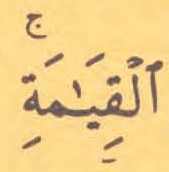 ٱلْقِيَٰمَةِۚ